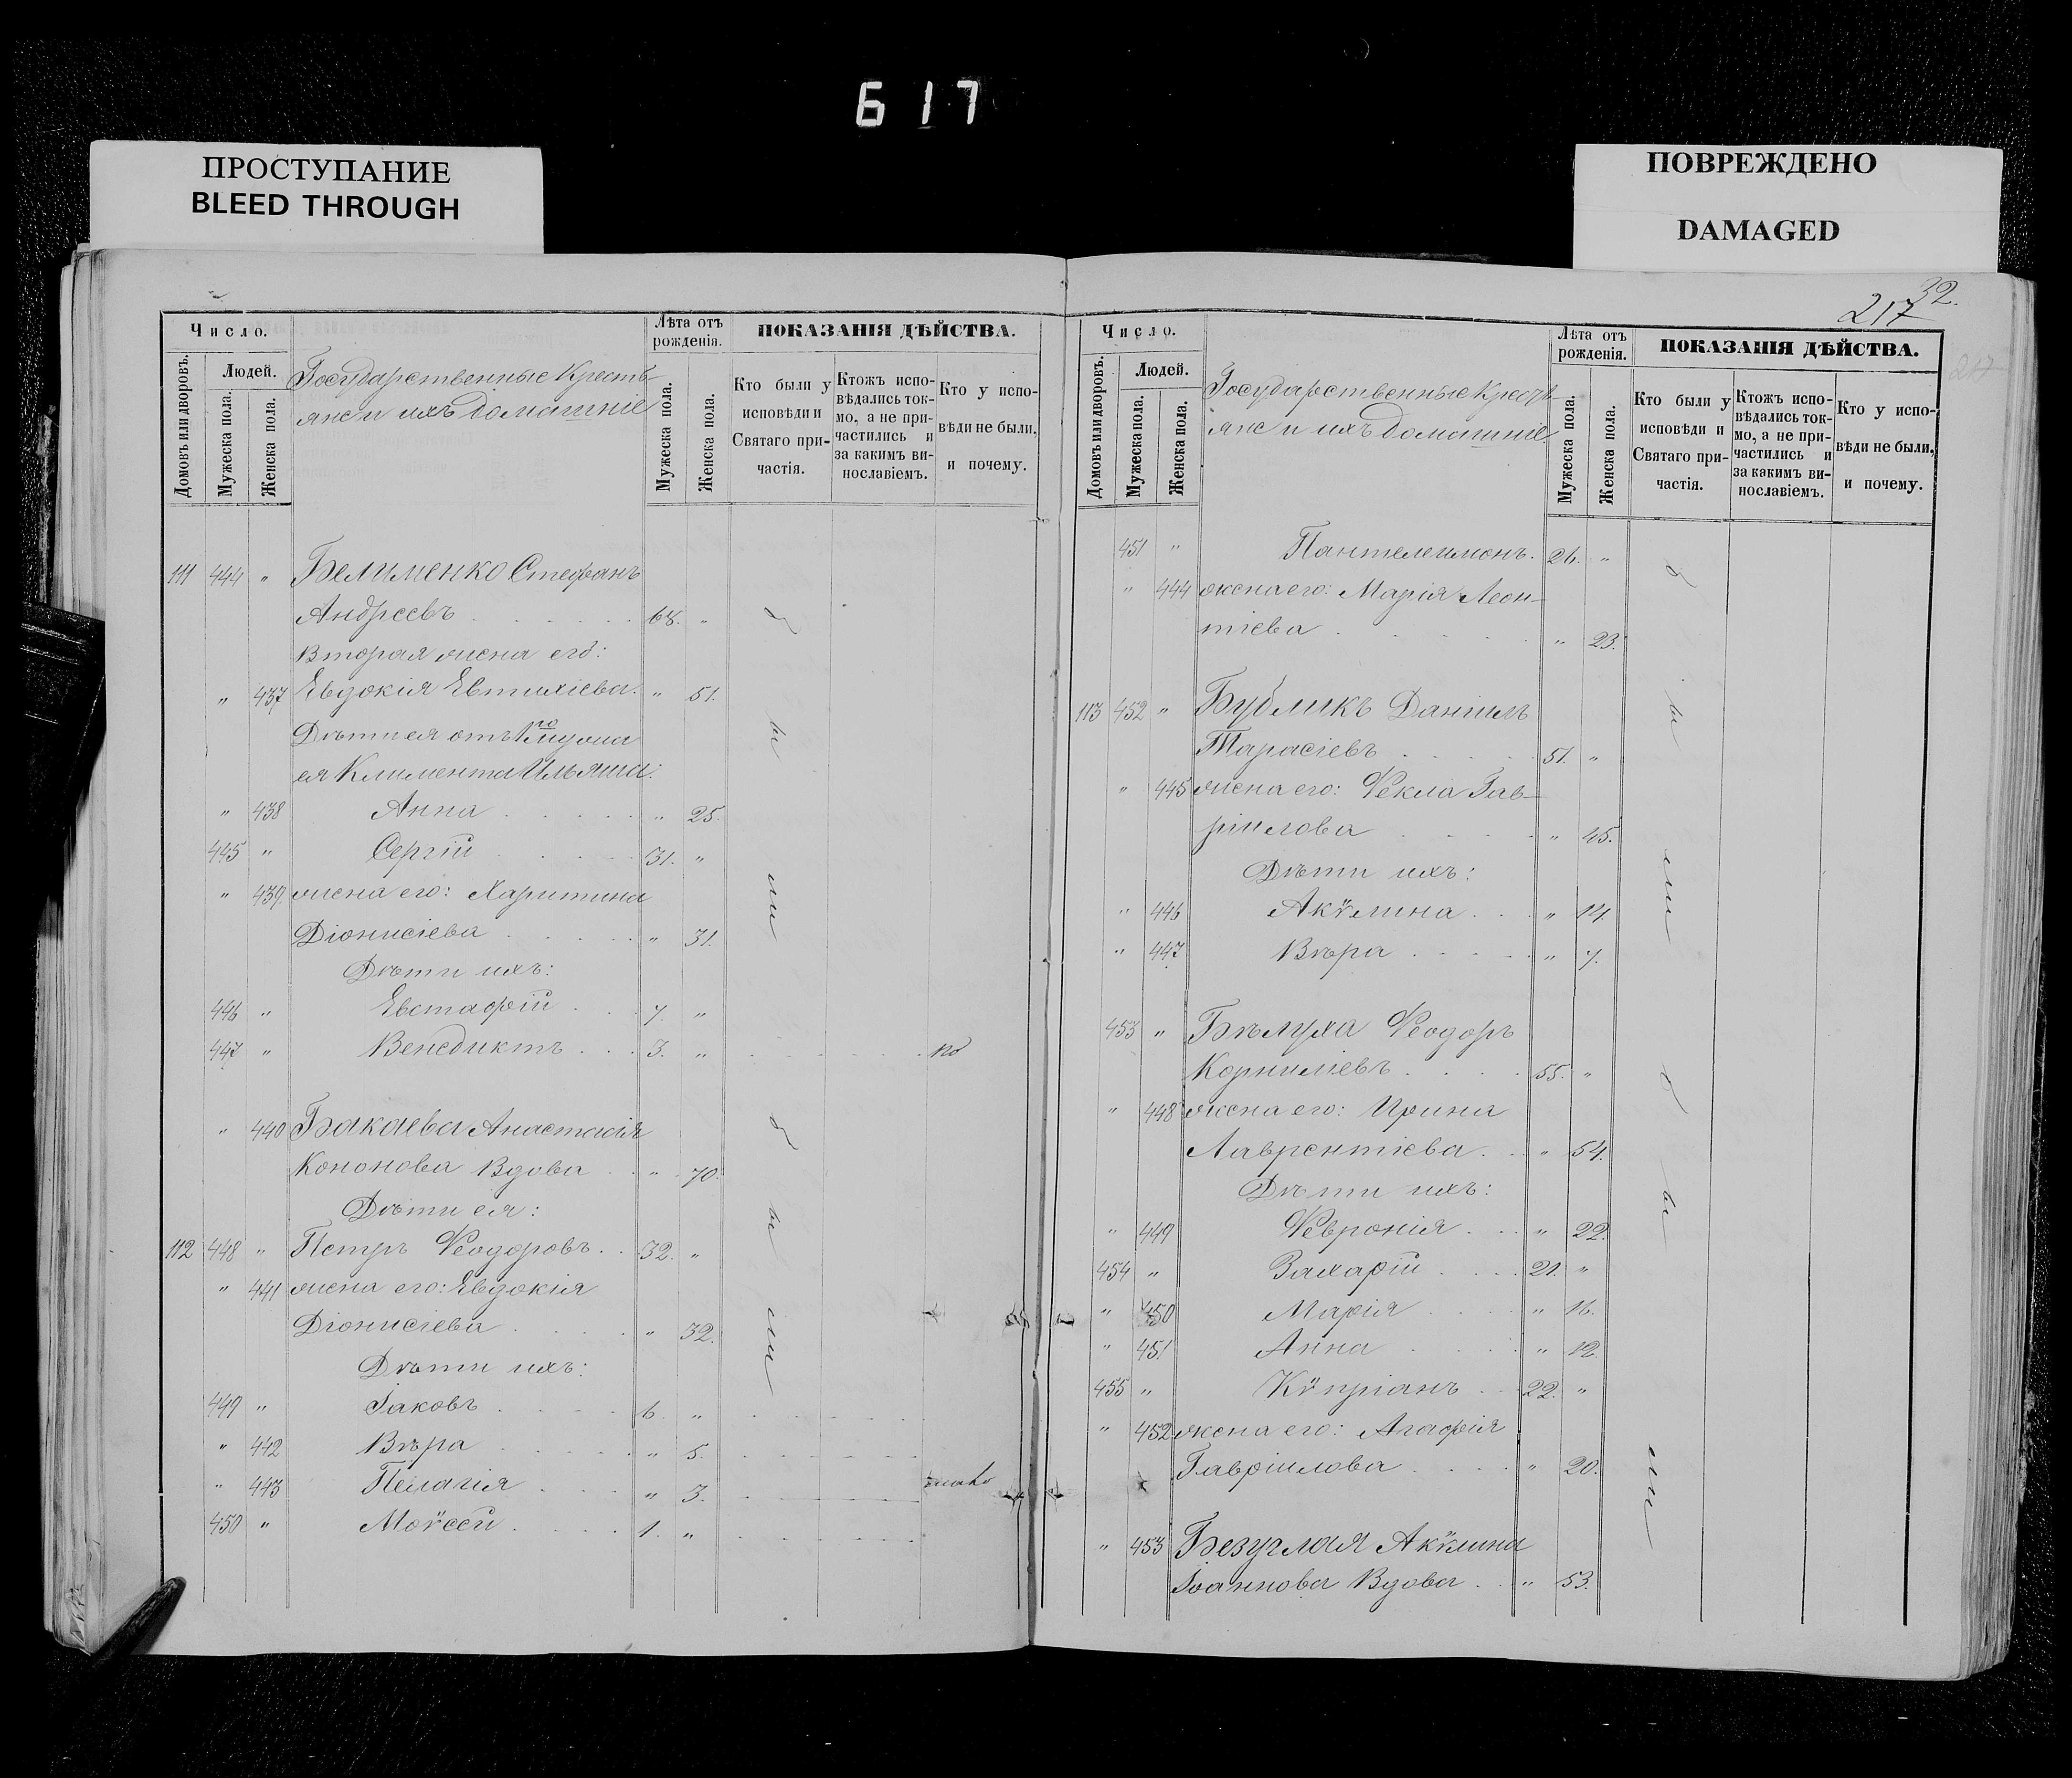 617
ПРОСТУПАНИЕ
BLEED THROUGH
ПОВРЕЖДЕНО
DAMAGED
Число.
Домовъ или дворовъ.
Людей.
Мужеска пола.
Женска пола.
Государственные Кресть-
яне и ихъ домашніе
Лѣта отъ рожденія.
Мужеска пола.
Женска пола.
ПОКАЗАНІЯ ДѢЙСТВА.
Кто были у исповѣди и Святаго при-частія.
Ктожъ испо-вѣдались ток-мо, а не при-частились и за какимъ ви-нославіемъ.
Кто у испо-вѣди не были, и почему.
111 444 " Белименко Стефанъ
Андреевъ 68. "
Вторая жена его:
" 437 Евдокія Евтихіева. " 51.
Дѣти ея отъ 1го мужа
ея Климента Ильяша:
" 438 Анна " 25.
445 " Сергій 31. "
" 439. жена его: Харитина
Діонисіева " 31.
Дѣти ихъ:
446 " Евстафій 7. "
447 " Венедиктъ 3. "
" 440 Бакаева Анастасія
Кононова Вдова " 70.
Дѣти ея:
112 448 " Петръ Ѳеодоровъ 32. "
" 441 жена его: Евдокія
Діонисіева " 32.
Дѣти ихъ:
449 " Іаковъ 6. "
" 442 Вѣра " 5.
" 443 Пелагія " 3.
450 " Моѵсей 1. "
были
были
32.
217
Число.
Домовъ или дворовъ.
Людей.
Мужеска пола.
Женска пола.
Государственные Кресть-
яне и ихъ домашніе.
Лѣта отъ рожденія.
Мужеска пола.
Женска пола.
ПОКАЗАНІЯ ДѢЙСТВА.
Кто были у исповѣди и Святаго при-частія.
Ктожъ испо-вѣдались ток-мо, а не при-частились и за какимъ ви-нославіемъ.
Кто у испо-вѣди не были, и почему.
451 " Пантелеимонъ. 26. "
" 444 жена его: Марія Леон-
тіева " 23.
113 452 " Бубликъ Даніилъ
Тарасіевъ 51. "
" 445 жена его: Ѳекла Гав-
ріилова " 45.
Дѣти ихъ:
" 446 Акѵлина " 14.
" 447 Вѣра " 7.
453 " Бѣлуха Ѳеодоръ
Корниліевъ 55. "
" 448 жена его: Ирина
Лаврентіева " 54.
Дѣти ихъ:
" 449 Ѳевронія " 22.
454 " Захарій 21. "
" 450 Марія " 16.
" 451 Анна " 12.
455 " Кѵпріанъ 22. "
" 452 жена его: Агафія
Гавріилова " 20.
" 453 Безуглая Акѵлина
Іоаннова Вдова " 53.
были
были